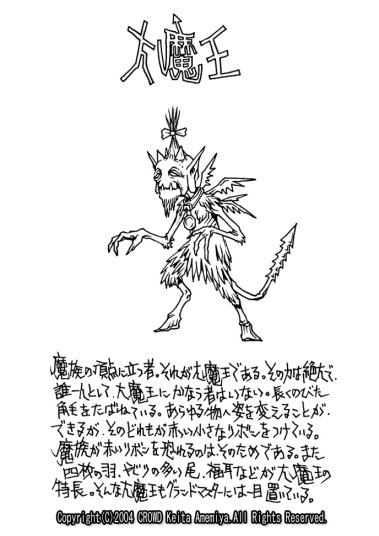 大魔王
魔族の頂点に立つ者。それが大魔王である。その力は絶大で、
誰一人として、大魔王にかなう者はいない。長くのびた
角毛をたばねている。あらゆる物へ姿を変えることが
できるが、そのどれもが赤い小さなリボンをつけている。
魔族が赤いリボンを恐れるのは、そのためである。また
四枚の羽、ギザリの多い尾、福耳などが大魔王の
特長。そんな大魔王もグランドマスターには一目置いている。
Copyright(C)2004 CROWD Keita Amemiya.All Rights Reserved.